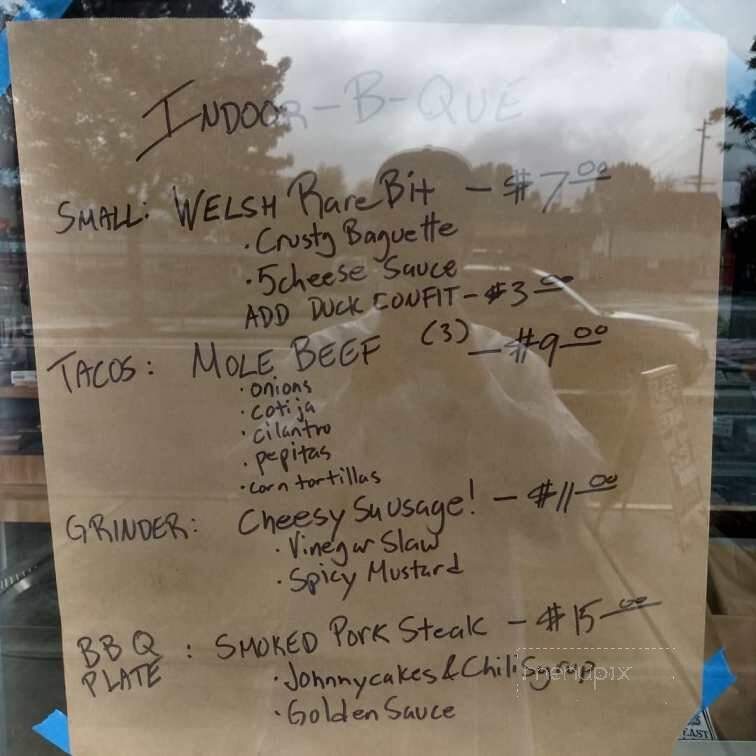 INDOOR-B-QUE
SMALL: WELSH RareBit - $7.00
· Crusty Baguette
· 5cheese Sauce
ADD DUCK CONFIT - $3.00
TACOS: MOLE BEEF (3) - $9.00
· onions
· cotija
· cilantro
· pepitas
· corn tortillas
GRINDER: Cheesy Sausage! - $11.00
· Vinegar Slaw
· Spicy Mustard
BBQ PLATE: SMOKED Pork Steak - $15.00
· Johnnycakes & Chili Syrup
· Golden Sauce
menupix
EAST